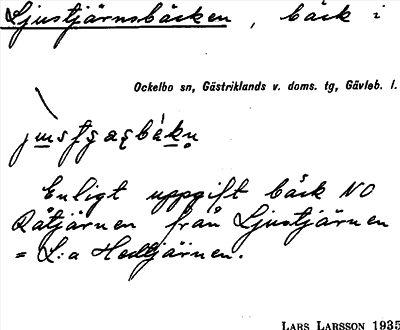 Ljustjärnsbäcken, bäck i
Ockelbo sn, Gästriklands v. doms. tg, Gävleb. l.
Enligt uppgift bäck NO
Råtjärnen från Ljustjärnen
= L:a Hedtjärnen.
LARS LARSSON 1935